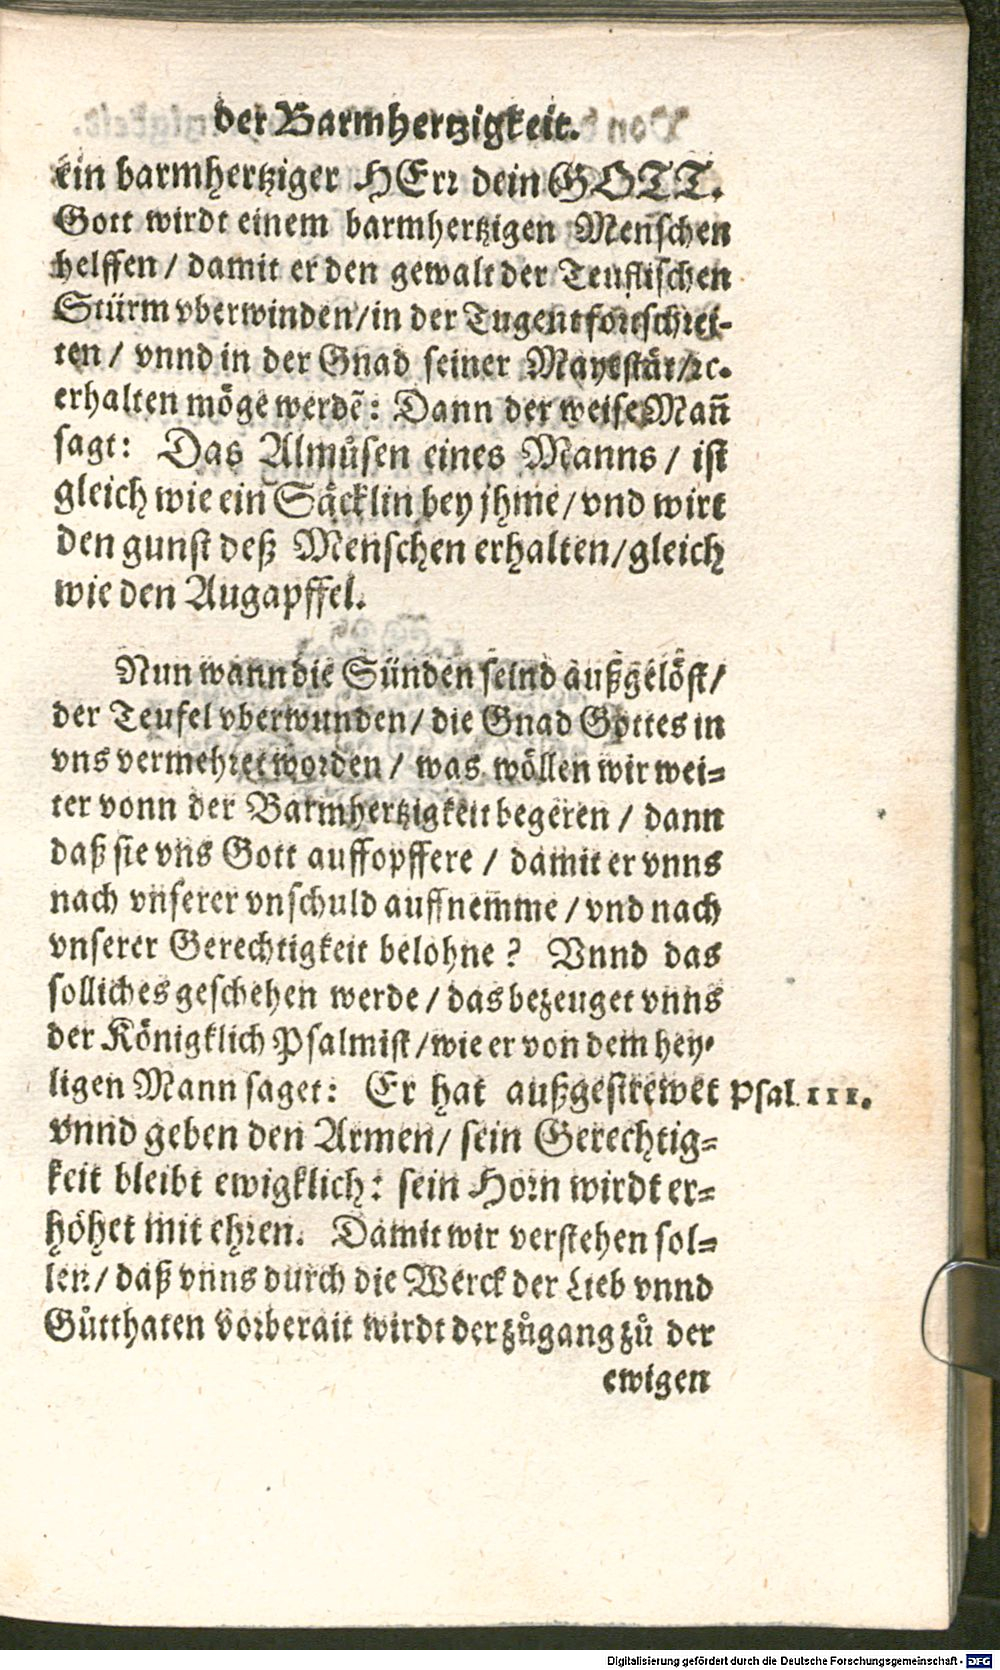 der Barmhertzigkeit.
ein barmhertziger HErr dein GOTT.
Gott wirdt einem barmhertzigen Menschen
helffen / damit er den gewalt der Teuflischen
Stürm vberwinden/in der Tugent fortschrei-
ten / vnnd in der Gnad seiner Mayestät/rc.
erhalten möge werdē: Dann der weise Mañ
sagt: Das Almůsen eines Manns / ist
gleich wie ein Säcklin bey jhme/vnd wirt
den gunst deß Menschen erhalten/gleich
wie den Augapffel.
Nun wann die Sünden seind außgelöst/
der Teufel vberwunden/ die Gnad Gottes in
vns vermehret worden / was wöllen wir wei-
ter vonn der Barmhertzigkeit begeren / dann
daß sie vns Gott auffopffere / damit er vnns
nach vnserer vnschuld auffnemme / vnd nach
vnserer Gerechtigkeit belohne ? Vnnd das
solliches geschehen werde / das bezeuget vnns
der Königklich Psalmist/wie er von dem hey-
ligen Mann saget: Er hat außgestrewet Psal. 111.
vnnd geben den Armen/ sein Gerechtig-
keit bleibt ewigklich: sein Horn wirdt er-
höhet mit ehren. Damit wir verstehen sol-
len/ daß vnns durch die Werck der Lieb vnnd
Gůtthaten vorberait wirdt der zůgang zů der
ewigen
Digitalisierung gefördert durch die Deutsche Forschungsgemeinschaft - DFG